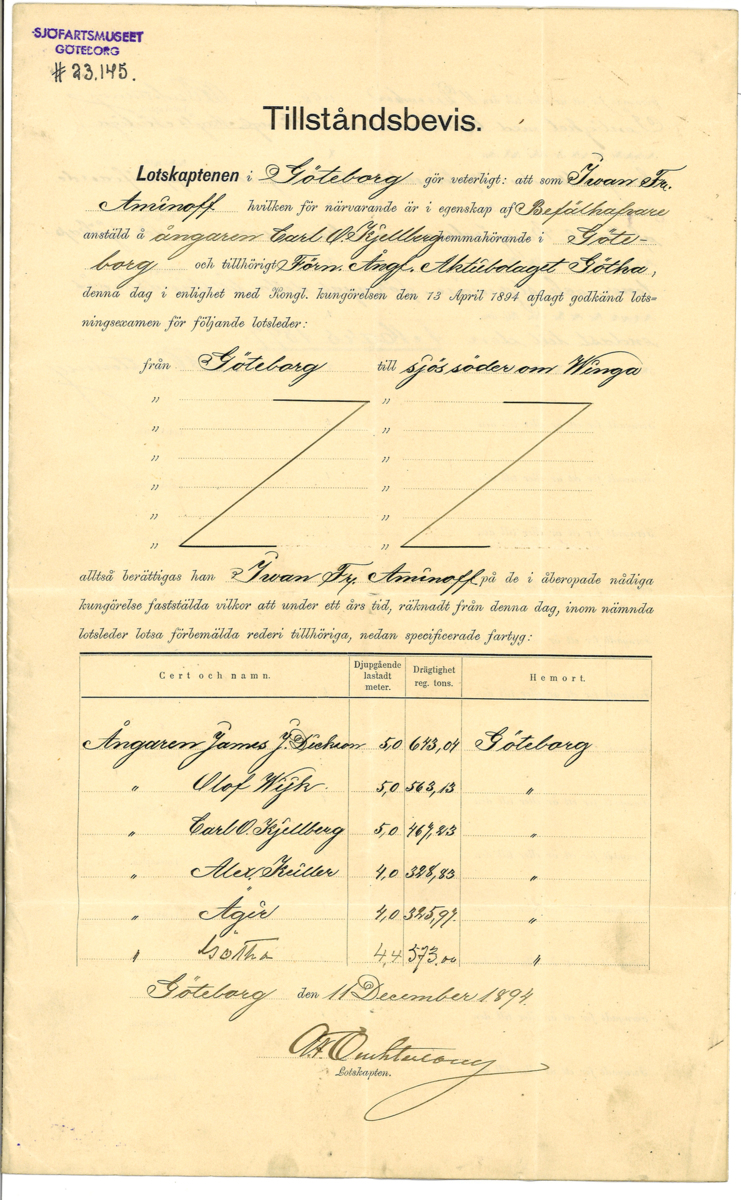 SJÖFARTSMUSEET
GÖTEBORG
# 23.145.
Tillståndsbevis.
Lotskaptenen i Göteborg gör veterligt: att som Iwan Fr.
Aminoff hvilken för närvarande är i egenskap af Befälhafvare
anstäld å ångaren Carl O. Kjellberg hemmahörande i Göte-
borg och tillhörigt Förn. Ångf. Aktiebolaget Götha,
denna dag i enlighet med Kongl. kungörelsen den 13 April 1894 aflagt godkänd lots-
ningsexamen för följande lotsleder:
från Göteborg till sjös söder om Winga
" "
" "
" "
" "
" "
" "
alltså berättigas han Iwan Fr. Aminoff på de i åberopade nådiga
kungörelse faststälda vilkor att under ett års tid, räknadt från denna dag, inom nämnda
lotsleder lotsa förbemälda rederi tillhöriga, nedan specificerade fartyg:
Cert och namn. Djupgående lastadt meter. Drägtighet reg. tons. Hemort.
Ångaren James J. Dickson 5,0 643,04 Göteborg
" Olof Wijk. 5,0 563,13 "
" Carl O. Kjellberg 5,0 467,23 "
" Alex. Keiller 4,0 328,83 "
" Ägir 4,0 325,97. "
" Götha 4,4 573.00 "
Göteborg den 11 December 1894.
Lotskapten.